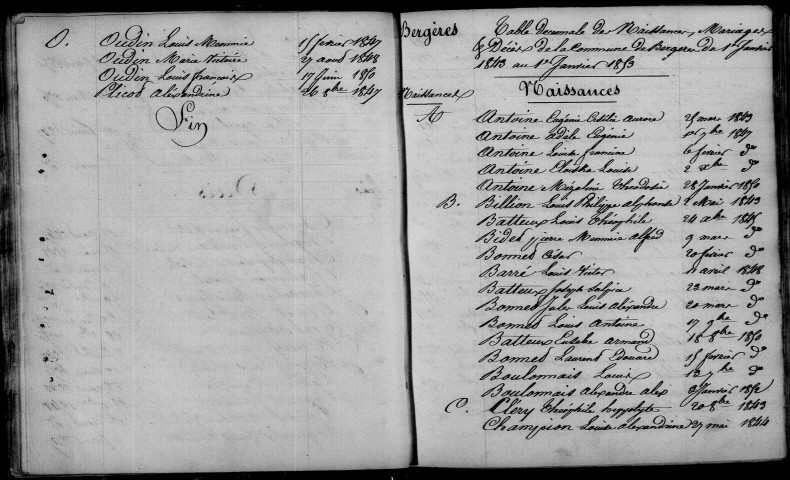 O. Oudin Louis Memmie 15 fevrier 1847
Oudin Marie Victoire 27 aout 1848
Oudin Louis francois 17 Juin 1850
Plicot alexandrine 26 8bre 1847
Fin
Bergères
Table Decennale de Naissances, Mariages
& Décès de la Commune de Bergeres de 1er Janvier
1843 au 1er Janvier 1853
Naissances
Naissances
A Antoine Eugénie aurore 25 mars 1843
Antoine adèle Eugénie 1er 9bre 1847
Antoine Louise francine 6 fevrier do
Antoine Louise 2 do
Antoine Theodosie 28 Janvier 1850
B. Billion Louis Philippe alphonse 2 Mai 1843
Batteux Louis théophile 24 1845
Bidet pierre Memmie alfred 9 mars do
Bonnet César 20 fevrier do
Barré Louis Victor avril 1848
Batteux Joseph 23 mars do
Bonnet Jules Louis alexandre 20 mars do
Bonnet Louis Antoine 17 9bre do
Batteux Eusebe armand 18 8bre 1850
Bonnet Laurent Edouard 15 fevrier do
Boulonnais Louis 13 7bre do
Boulonnais alexandre alex 3 Janvier 1852
C. Cléry théophile hyppolyte 20 8bre 1843
Champion Louise alexandrine 27 mai 1844